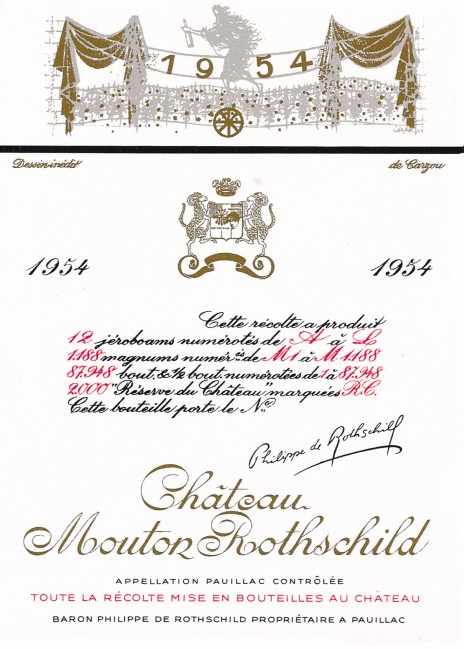 1954
Dessin inédit de Carzou
1954 1954
Cette récolte a produit
12 jéroboams numérotés de A à L
1.188 magnums numér.és de M1 à M1.188
87.948 bout. & ½ bout. numérotées de 1 à 87.948
2.000 "Réserve du Château" marquées R.C.
Cette bouteille porte le N.º
Philippe de Rothschild
Château
Mouton Rothschild
APPELLATION PAUILLAC CONTRÔLÉE
TOUTE LA RÉCOLTE MISE EN BOUTEILLES AU CHÂTEAU
BARON PHILIPPE DE ROTHSCHILD PROPRIÉTAIRE A PAUILLAC